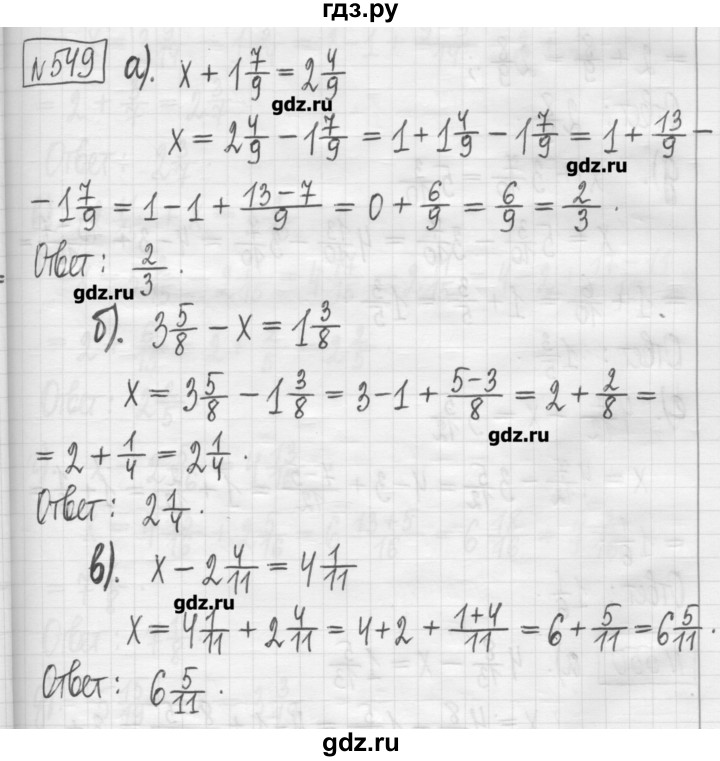 гдз.ру
№549 а). x + 1 7/9 = 2 4/9
gdz.ru
x = 2 4/9 − 1 7/9 = 1 + 1 4/9 − 1 7/9 = 1 + 13/9 −
gdz.ru
− 1 7/9 = 1 − 1 + (13−7)/9 = 0 + 6/9 = 6/9 = 2/3 .
Ответ: 2/3 .
gdz.ru
б). 3 5/8 − x = 1 3/8
x = 3 5/8 − 1 3/8 = 3 − 1 + (5−3)/8 = 2 + 2/8 =
gdz.ru
= 2 + 1/4 = 2 1/4 .
Ответ: 2 1/4 .
в). x − 2 4/11 = 4 1/11
gdz.ru
x = 4 1/11 + 2 4/11 = 4+2 + (1+4)/11 = 6 + 5/11 = 6 5/11 .
Ответ: 6 5/11 .
gdz.ru